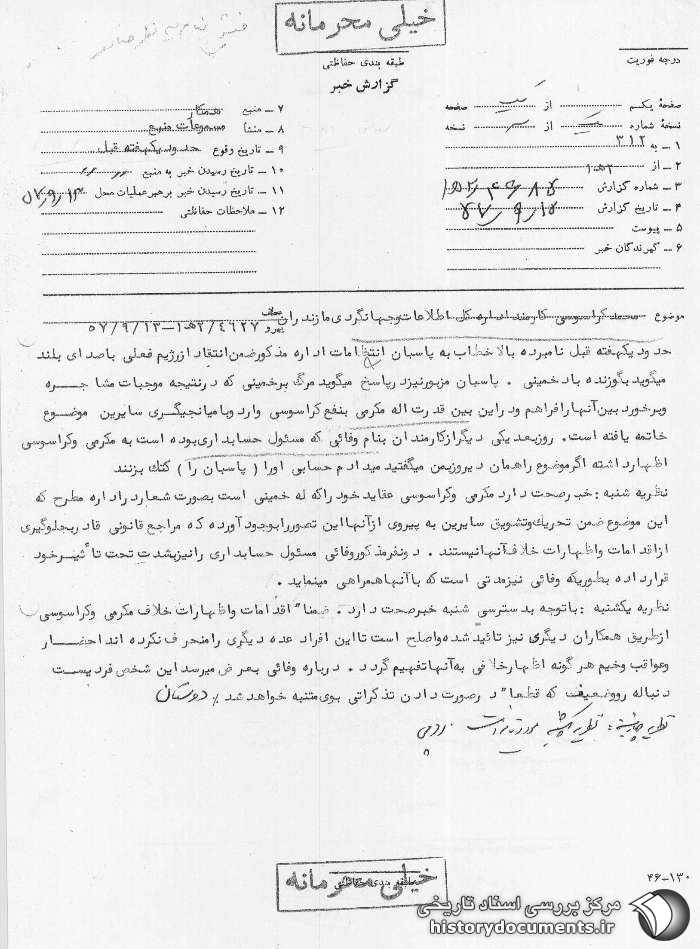 خیلی محرمانه
طبقه بندی حفاظتی
گزارش خبر
درجه فوریت
صفحهٔ یکم از یک صفحه
نسخهٔ شماره از نسخه
۱ ــ به ۳۱۲
۲ ــ از ۲هـ۱
۳ ــ شماره گزارش
۴ ــ تاریخ گزارش
۵ ــ پیوست
۶ ــ گیرندگان خبر
۷ ــ منبع همکار
۸ ــ منشأ مسموعات منبع
۹ ــ تاریخ وقوع حدود یکهفته قبل
۱۰ ــ تاریخ رسیدن خبر به منبع
۱۱ ــ تاریخ رسیدن خبر برهبر عملیات محل
۱۲ ــ ملاحظات حفاظتی
موضوع محمد کراسوسی کارمند اداره کل اطلاعات وجهانگردی مازندران
عطف پیرو ۲/۴۶۲۷هـ۱ــ ۵۷/۹/۱۳
حدود یکهفته قبل نامبرده بالا خطاب به پاسبان انتظامات اداره مذکور ضمن انتقاد از رژیم فعلی با صدای بلند
میگوید بگو زنده باد خمینی . پاسبان مزبور نیز در پاسخ میگوید مرگ بر خمینی که در نتیجه موجبات مشاجــره
وبرخورد بین آنها را فراهم و در این بین قدرت اله مکرمی بنفع کراسوسی وارد وبا میانجیگــری سایرین موضــوع
خاتمه یافته است. روز بعد یکی دیگر از کارمندان بنام وفائی که مسئول حسابداری بوده است به مکرمی وکراسوسی
اظهار داشته اگر موضوع را همان دیروز بمن میگفتید میدادم حسابی او را ( پاسبان را ) کتک بزنند
نظریه شنبه : خبر صحت دارد مکرمی وکراسوسی عقاید خود را که له خمینی است بصورت شعار در اداره مطرح که
این موضوع ضمن تحریک وتشویق سایرین به پیروی از آنها این تصور را بوجود آورده که مراجع قانونی قادر بجلوگیری
از اقدامات واظهارات خلاف آنها نیستند . دو نفر مذکور وفائی مسئول حسابداری را نیز بشدت تحت تأثیــر خود
قرار داده بطوریکه وفائی نیز مدتی است که با آنها همراهی مینماید .
نظریه یکشنبه : با توجه بدسترسی شنبه خبر صحت دارد . ضمنا" اقدامات واظهارات خلاف مکرمی وکراسوسی
از طریق همکاران دیگری نیز تائید شده واصلح است تا این افراد عده دیگری را منحرف نکرده اند احضــــار
وعواقب وخیم هر گونه اظهار خلافی به آنها تفهیم گردد . درباره وفائی بعرض میرسد این شخص فردیست
دنباله رو وضعیف که قطعا" در صورت دادن تذکراتی بوی متنبه خواهد شد ٪ دوستان
نظریه چهارشنبه : نظریه یکشنبه مورد تایید است
خیلی محرمانه
طبقه بندی حفاظتی
۴۶-۱۳۰
مرکز بررسی اسناد تاریخی
historydocuments.ir